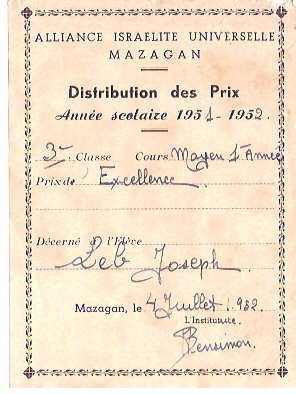 ALLIANCE ISRAELITE UNIVERSELLE
MAZAGAN
Distribution des Prix
Année scolaire 1951-1952.
3e Classe Cours Moyen 1e Année
Prix de Excellence
Décerné à l'Elève
Leb Joseph
Mazagan, le 4 Juillet 1952
L'Instituteur.
Bensimon